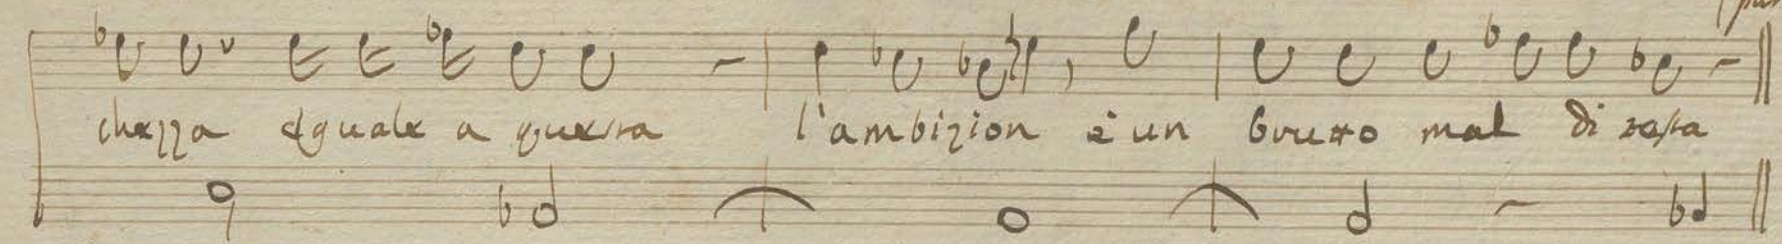 chezza eguale a questa l'ambizion è un brutto mal di testa